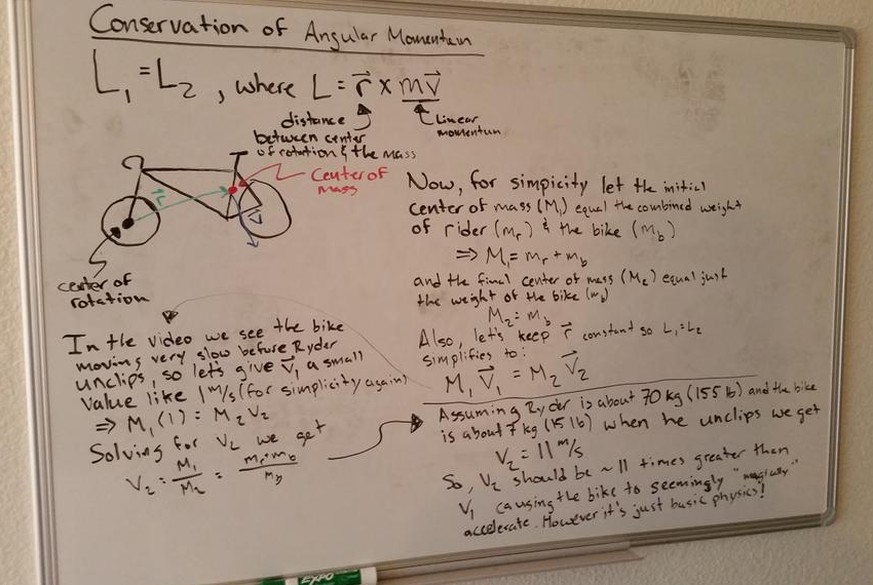 Conservation of Angular Momentum
L₁ = L₂ , where L = r⃗ x mv⃗
distance
between center
of rotation & the mass
Linear
momentum
Center of
mass
r⃗
v⃗
center of
rotation
Now, for simpicity let the initial
center of mass (M₁) equal the combined weight
of rider (mᵣ) & the bike (m_b)
⇒ M₁ = mᵣ + m_b
and the final center of mass (M₂) equal just
the weight of the bike (m_b)
M₂ = m_b
Also, let's keep r⃗ constant so L₁=L₂
simplifies to:
M₁ V⃗₁ = M₂ V⃗₂
In the video we see the bike
moving very slow before Ryder
unclips, so let's give V⃗₁ a small
value like 1 m/s (for simplicity again)
⇒ M₁(1) = M₂V₂
Solving for V₂ we get
V₂ = M₁/M₂ = mᵣ+m_b/m_b
Assuming Ryder is about 70 kg (155 lb) and the bike
is about 7 kg (15 lb) when he unclips we get
V₂ = 11 m/s
So, V₂ should be ~ 11 times greater than
V₁ causing the bike to seemingly "magically"
accelerate. However it's just basic physics!
EXPO